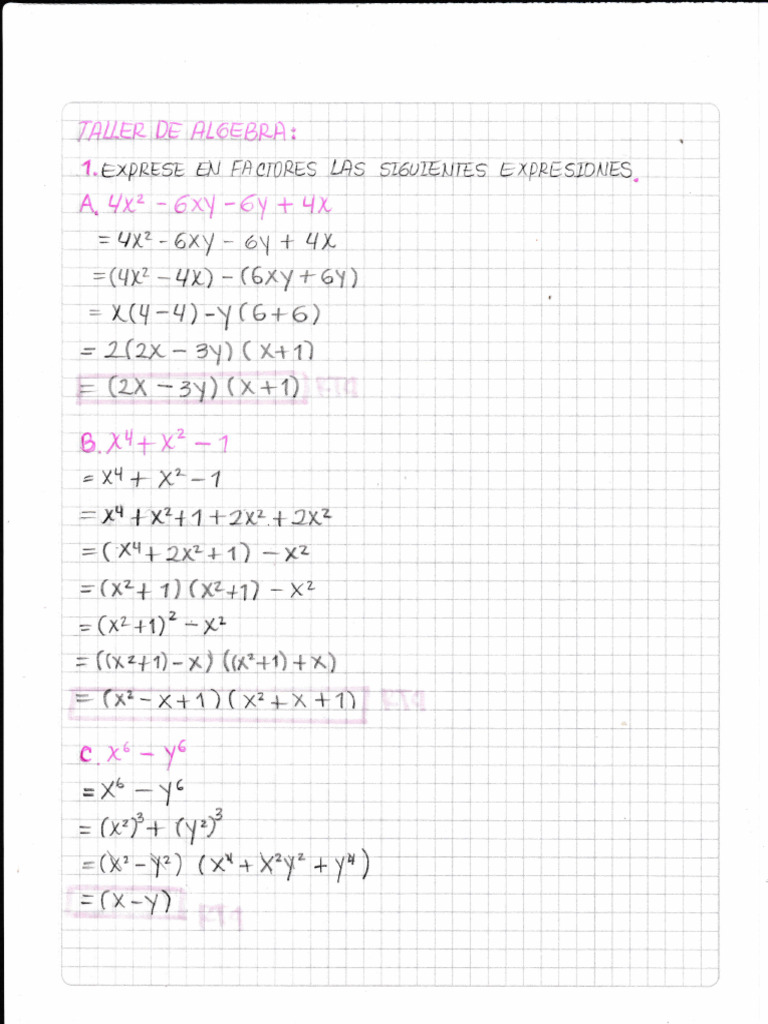 TALLER DE ALGEBRA:
1. EXPRESE EN FACTORES LAS SIGUIENTES EXPRESIONES.
A. 4x² - 6xy - 6y + 4x
= 4x² - 6xy - 6y + 4x
= (4x² - 4x) - (6xy + 6y)
= x(4 - 4) - y(6 + 6)
= 2(2x - 3y)(x+1)
= (2x - 3y)(x+1)
B. x⁴ + x² - 1
= x⁴ + x² - 1
= x⁴ + x² + 1 + 2x² + 2x²
= (x⁴ + 2x² + 1) - x²
= (x² + 1)(x² + 1) - x²
= (x² + 1)² - x²
= ((x²+1) - x)((x²+1) + x)
= (x² - x + 1)(x² + x + 1)
C. x⁶ - y⁶
= x⁶ - y⁶
= (x²)³ + (y²)³
= (x² - y²) (x⁴ + x²y² + y⁴)
= (x - y)